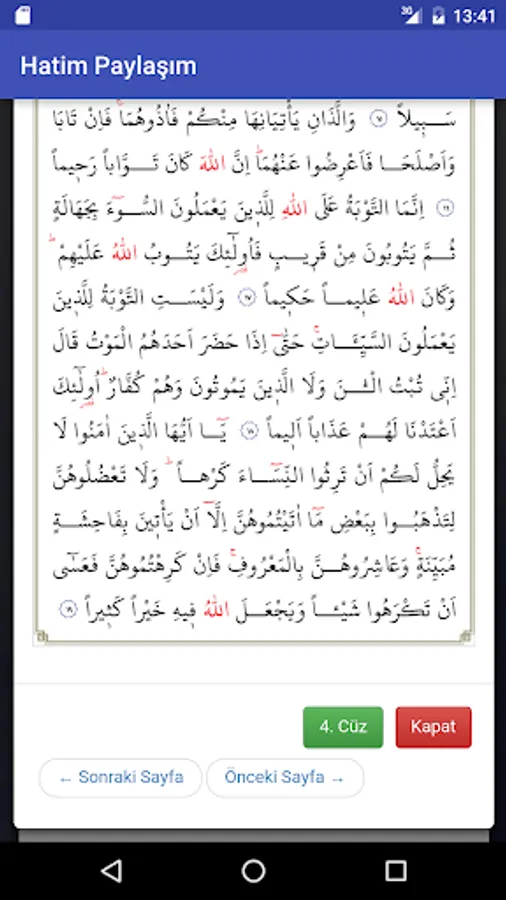 3G 13:41
Hatim Paylaşım
سَبٖيلاً ﴿١٥﴾ وَالَّذَانِ يَأْتِيَانِهَا مِنْكُمْ فَاٰذُوهُمَاۚ فَاِنْ تَابَا
وَاَصْلَحَا فَاَعْرِضُوا عَنْهُمَاۜ اِنَّ اللّٰهَ كَانَ تَوَّاباً رَحٖيماً
﴿١٦﴾ اِنَّمَا التَّوْبَةُ عَلَى اللّٰهِ لِلَّذٖينَ يَعْمَلُونَ السُّٓوءَ بِجَهَالَةٍ
ثُمَّ يَتُوبُونَ مِنْ قَرٖيبٍ فَاُو۬لٰٓئِكَ يَتُوبُ اللّٰهُ عَلَيْهِمْۜ
وَكَانَ اللّٰهُ عَلٖيماً حَكٖيماً ﴿١٧﴾ وَلَيْسَتِ التَّوْبَةُ لِلَّذٖينَ
يَعْمَلُونَ السَّيِّـَٔاتِۚ حَتّٰٓى اِذَا حَضَرَ اَحَدَهُمُ الْمَوْتُ قَالَ
اِنّٖى تُبْتُ الْـٰٔنَ وَلَا الَّذٖينَ يَمُوتُونَ وَهُمْ كُفَّارٌۜ اُو۬لٰٓئِكَ
اَعْتَدْنَا لَهُمْ عَذَاباً اَلٖيماً ﴿١٨﴾ يَٓا اَيُّهَا الَّذٖينَ اٰمَنُوا لَا
يَحِلُّ لَكُمْ اَنْ تَرِثُوا النِّسَٓاءَ كَرْهاًۜ وَلَا تَعْضُلُوهُنَّ
لِتَذْهَبُوا بِبَعْضِ مَٓا اٰتَيْتُمُوهُنَّ اِلَّٓا اَنْ يَأْتٖينَ بِفَاحِشَةٍ
مُبَيِّنَةٍۚ وَعَاشِرُوهُنَّ بِالْمَعْرُوفِۚ فَاِنْ كَرِهْتُمُوهُنَّ فَعَسٰٓى
اَنْ تَكْرَهُوا شَيْـٔاً وَيَجْعَلَ اللّٰهُ فٖيهِ خَيْراً كَثٖيراً ﴿١٩﴾
4. Cüz Kapat
← Sonraki Sayfa Önceki Sayfa →